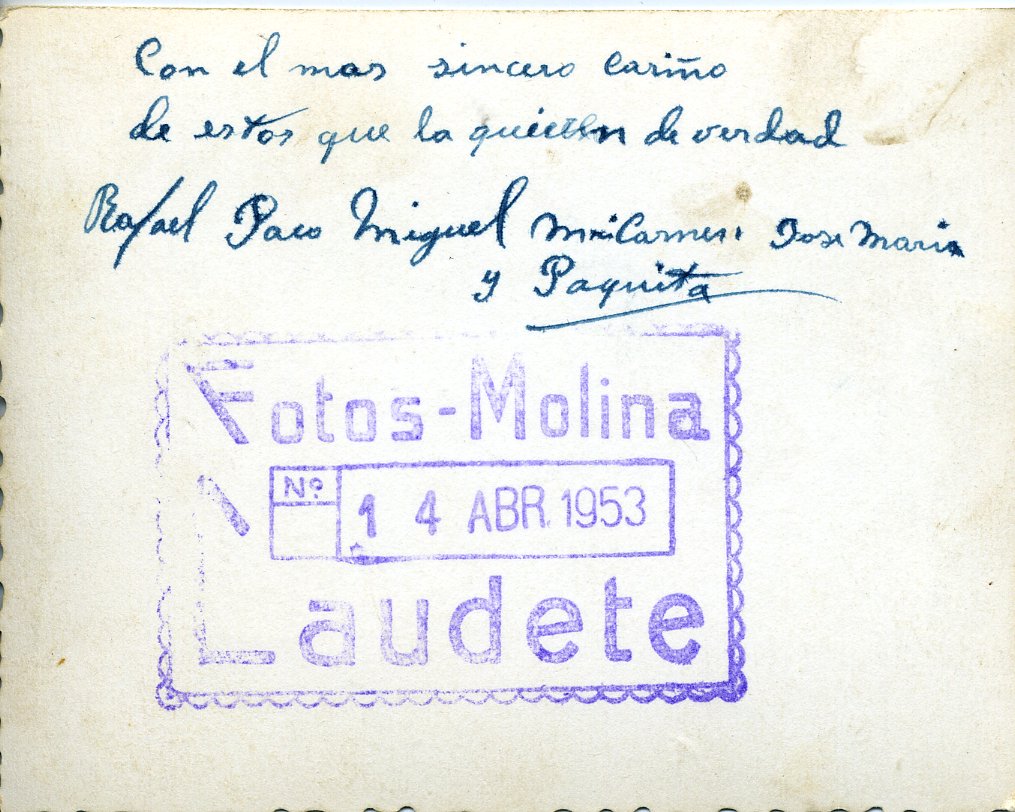 Con el mas sincero cariño
de estos que la quieren de verdad
Rafael Paco Miguel Mari Carmen Jose Maria
y Paquita
Fotos-Molina
Nº 14 ABR. 1953
Laudete